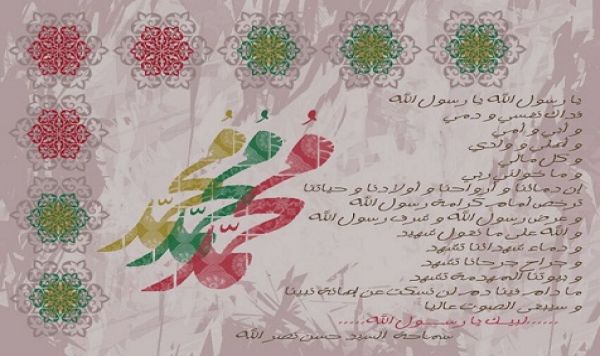 محمد
محمد
محمد
يا رسول الله يا رسول الله
فداك نفسي و دمي
و أبي و أمي
و أهلي و ولدي
و كل مالي
و ما خولني ربي
إن دمائنا و أرواحنا و أولادنا و حياتنا
ترخص أمام كرامة رسول الله
و عرض رسول الله و شرف رسول الله
و الله على ما نقول شهيد
و دماء شهدائنا تشهد
و جراح جرحانا تشهد
و بيوتنا المهدمة تشهد
ما دام فينا دم لن نسكت عن إهانة نبينا
و سيبقى الصوت عاليا
......لبيك يا رســول الله......
سماحة السيد حسن نصر الله